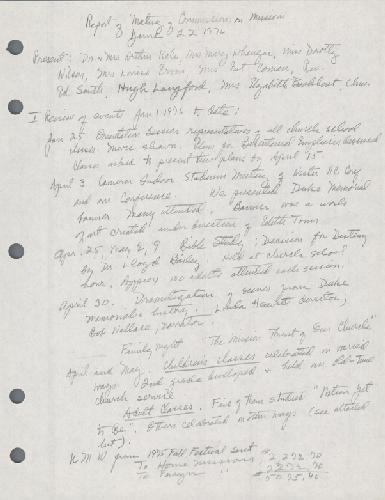 Report of Meeting of Commission on Missions
June 22 1976
Present: Dr & Mrs Arthur Kale, Mrs Mary Whanger, Mrs Dorothy
Wilson, Mrs Louise Mrs Pat Rev.
Ed Smith, Hugh Langford, Mrs Elizabeth Chm.
I Review of events Jan 1 1976 to date:
Jan 25 Orientation Session representatives of all church school
classes. Movie shown. Plans for Bicentennial Emphases discussed
Classes asked to present their plans by April 15.
April 3 Cameron Indoor Stadium Meeting of Western N.C. Conf
and our Conference. We presented Duke Memorial
banner. Many attended. Banner was a work
of art created under direction of Edith
Apr. 25, May 2, 9 Bible Study: "Decision for Destiny
by Dr. Lloyd held at church school
hour. Approx. 100 adults attended each session.
April 30. Dramatization of scenes from Duke
Memorial's history. Linda director,
Bob Wallace, narrator.
Family night "The Mission Thrust of Our Church"
April and May. Children's Classes celebrated in varied
ways. 2nd grade developed & held an old-time
church service
Adult Classes. Five of them studied "Nation Yet
to Be". Others celebrated in other ways (see attached
list).
U M W from 1975 Fall Festival sent
To Home Missions 2272.70
To Foreign " 2272.70